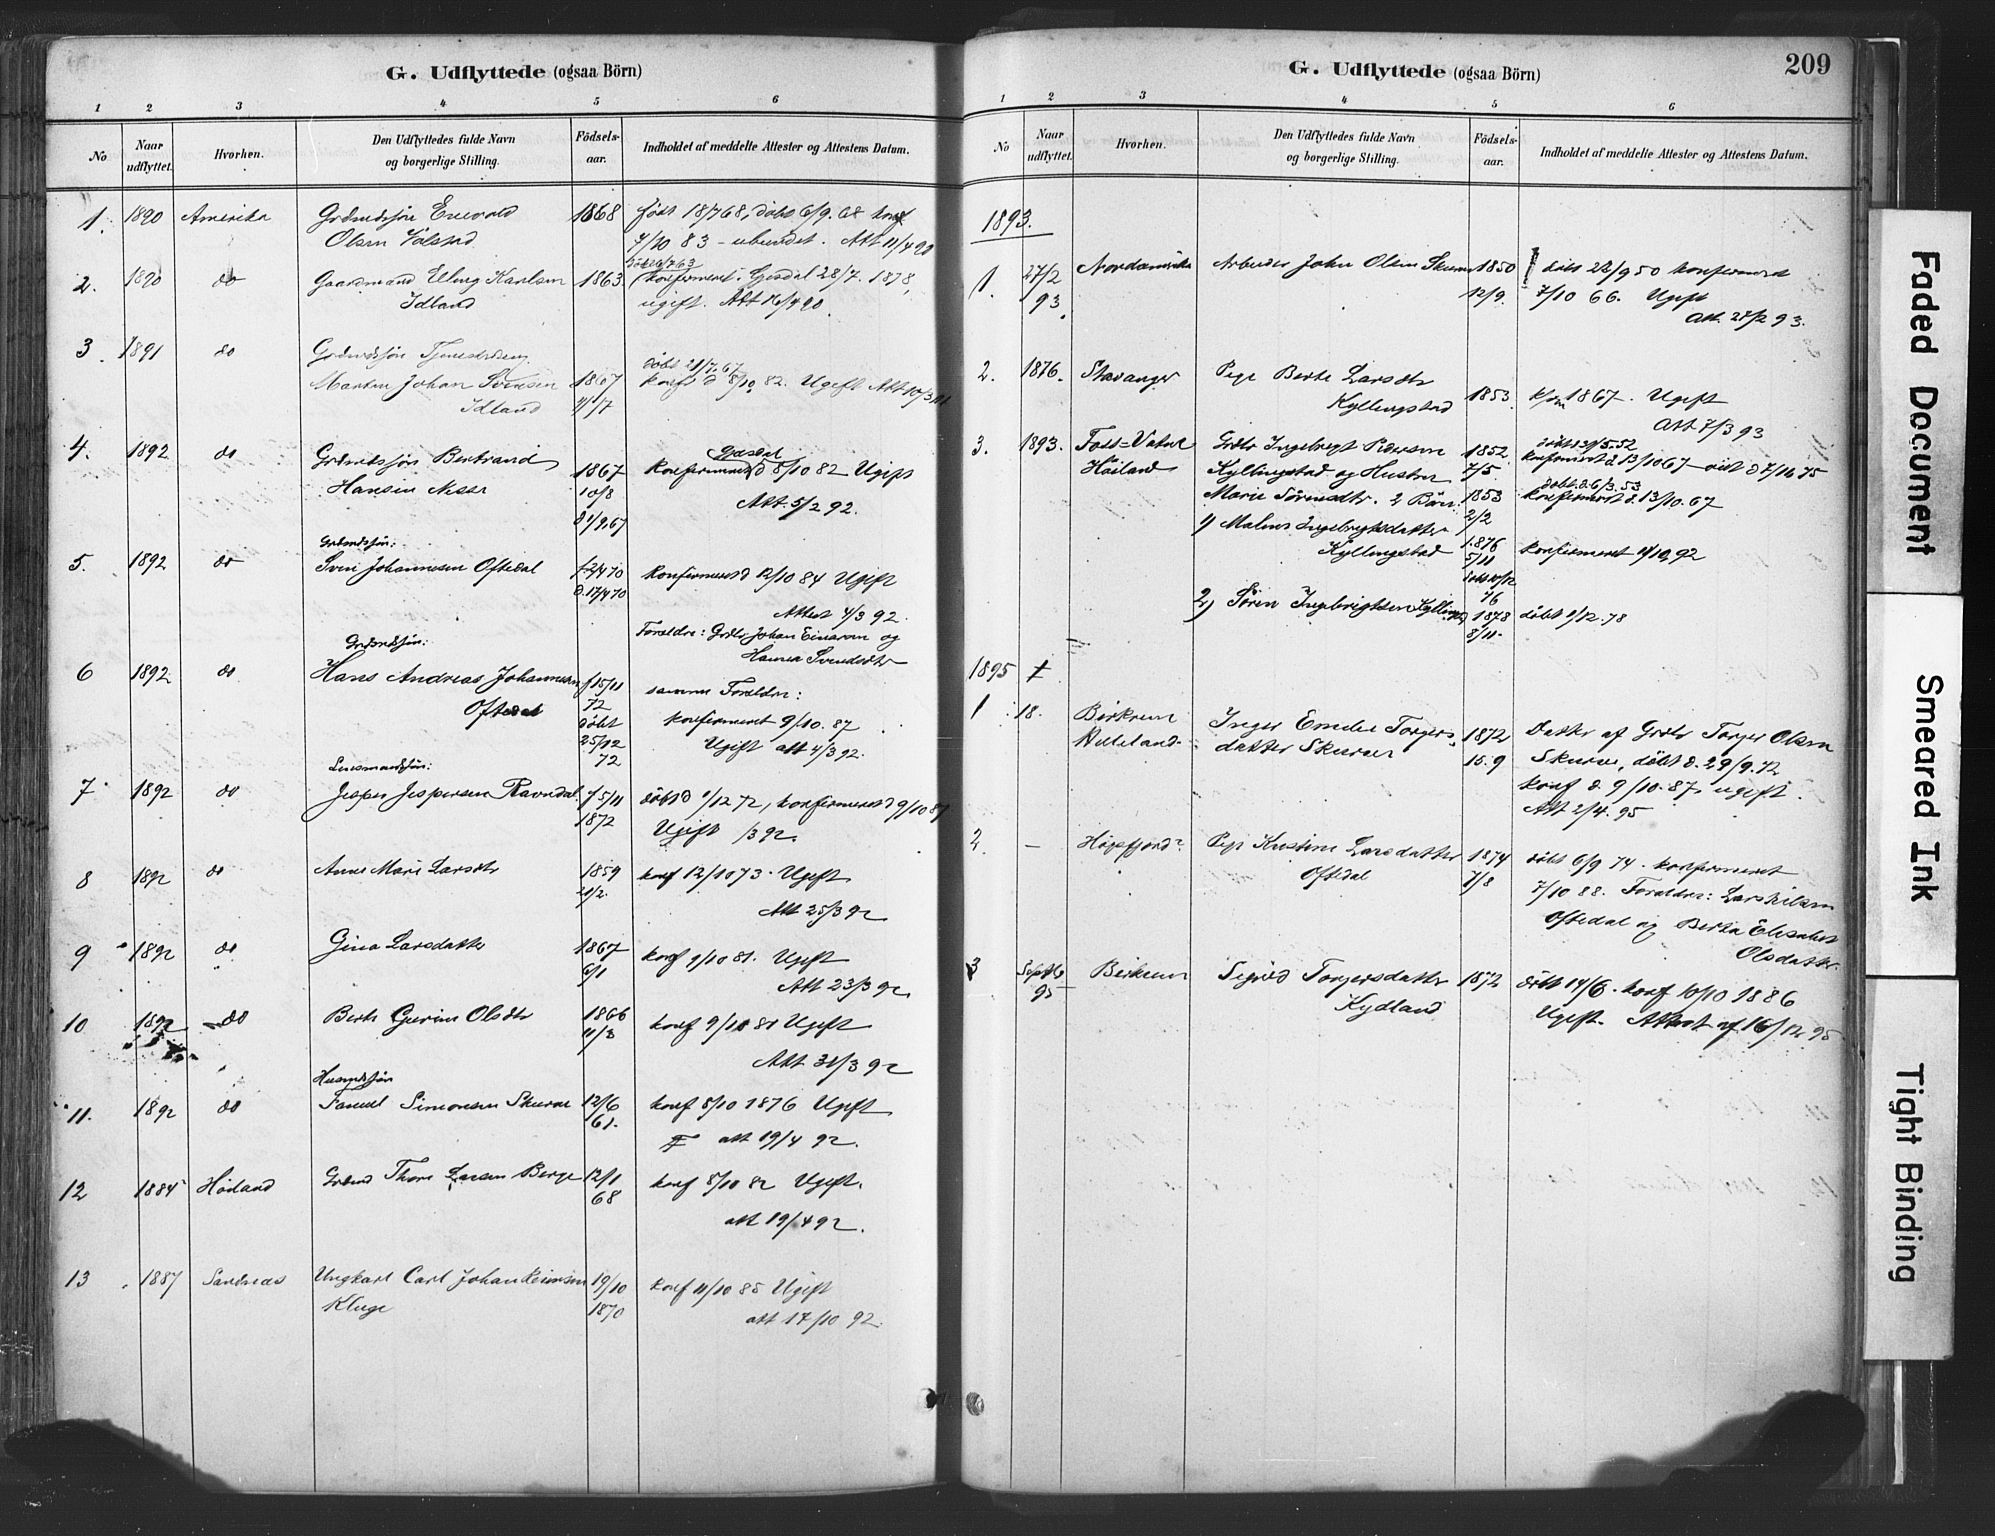 G. Udflyttede (ogsaa Börn)
1 2 3 4 5 6
No
Naar udflyttet.
Hvorhen.
Den Udflyttedes fulde Navn og borgerlige Stilling.
Fødsels-aar.
Indholdet af meddelte Attester og Attestens Datum.
1. 1890 Amerika Grdmdssøn Enevold 1868 født 18/7 68, døbt 6/9. 68 konf
Olsen 7/10 83 - ubundet. Att 11/4 90
2. 1890 do Gaardmand Elling Karlsen 1863 konfirmeret i Gjesdal 28/7. 1878,
Idland ugift. Att 16/4 90.
3. 1891 do Grdmdssøn
døbt 21/7. 67
Martin Johan Svensen 1867 konf d 8/10 82. Ugift Att
Idland
4. 1892 do Grdmdssøn Bertrand 1867 konfirmeret d 8/10 82 Ugift
Hansen 10/8 Att. 5/2 92.
Grdmdssøn:
5. 1892 do Sven Johannesen Oftedal konfirmeret d 12/10 84 Ugift
d. 17/4 70
Attest 4/3 92.
Forældre: Grdbr Johan Einarsen og
Hanna Svendsdtr
Grdmdssøn:
6 1892 do Hans Andreas Johannesen f 15/11 samme Forældre:
Oftedal 72 konfirmeret 9/10. 87
døbt Ugift att 4/3 92.
25/12
72
Lensmandssøn:
7 1892 do Jesper Jespersen Ravndal f 5/11 døbt d 1/12 72, konfirmeret d 9/10 87
1872 Ugift /3 92.
8 1892 do Anne Marie Larsdtr 1859 konf 12/10 73. Ugift
21/2. Att 25/3 92
9 1892 do Gina Larsdatter 1867 konf 9/10 81. Ugift
6/1 Att 23/3 92
10 1892 do Berte Gurine Olsdtr 1866 konf 9/10 81 Ugift
11/3 Att 31/3 92
Husmdssøn
11. 1892 do Samuel Simonsen Skurve 12/6 konf 8/10 1876 Ugift
61. att 19/4 92.
12 1884 Høiland Grdmd Thore Larsen Berge 12/1 konf 8/10 82 Ugift.
68 att 19/4 92.
13 1887 Sandnes Ungkarl Carl Johan Reinertsen 19/10 konf 11/10 85 Ugift
Kluge 1870 att 14/10 92.
G. Udflyttede (ogsaa Börn)
209
1 2 3 4 5 6
No
Naar udflyttet.
Hvorhen.
Den Udflyttedes fulde Navn og borgerlige Stilling.
Fødsels-aar.
Indholdet af meddelte Attester og Attestens Datum.
1893.
1. 27/2 Nordamerika Arbeider John Olsen Skurve 1850 døbt 22/9 50 konfirmeret
93. 12/9. 7/10 66. Ugift
Att. 27/2 93.
2. 1876. Stavanger Pige Berte Larsdtr 1853. 1867. Ugift
Kyllingstad Att 7/3 93
døbt 29/5. 52
3. 1893. Foss-Vatne Grdbr Ingebregt Pedersen 1852 konfirmeret d. 13/10 67 - viet d 7/11. 75
Høiland Kyllingstad og Hustru 7/5
døbt. d. 6/3. 53
Marie Sørensdtr. 2 Børn: 1853 konfirmeret d. 13/10. 67
2/2
1) Malene Ingebregtsdatter
Kyllingstad 1876 konfirmeret 10, 92
5/11
døbt 10/12
76
2) Søren Ingebrigtsen 1878 døbt 1/12. 78
8/11.
1895
1 18. Birkrem Inger Emelie Torgers- 1872 Datter af Grdbr Torger Olsen
Helleland. datter Skurve 15. 9 Skurve, døbt d. 29/9. 72
konf d. 9/10. 87. ugift.
Att 2/4. 95
2. - Høgsfjord Pige Kristine Larsdatter 1874 døbt 6/9 74. konfirmeret
Oftedal 7/8 7/10 88. Forældre: Lars Nilsen
Oftedal og Berta Elisabet
Olsdatter.
3 Septb Birkrem Sigrid Torgersdatter 1872 døbt 14/6. konf 10/10 1886
95 Kydland Ugift. Attest af 16/12 95
Faded Document
Smeared Ink
Tight Binding